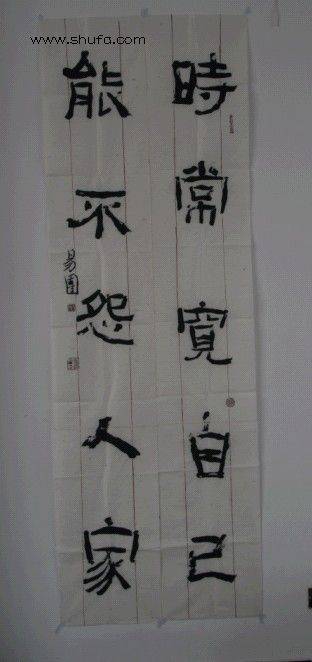 www.shufa.com
時常寛自己
能不怨人家
易園